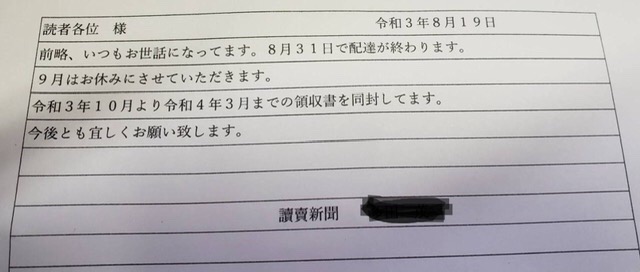 読者各位　様　　　　　令和３年８月１９日
前略、いつもお世話になってます。８月３１日で配達が終わります。
９月はお休みにさせていただきます。
令和３年１０月より令和４年３月までの領収書を同封してます。
今後とも宜しくお願い致します。
讀賣新聞